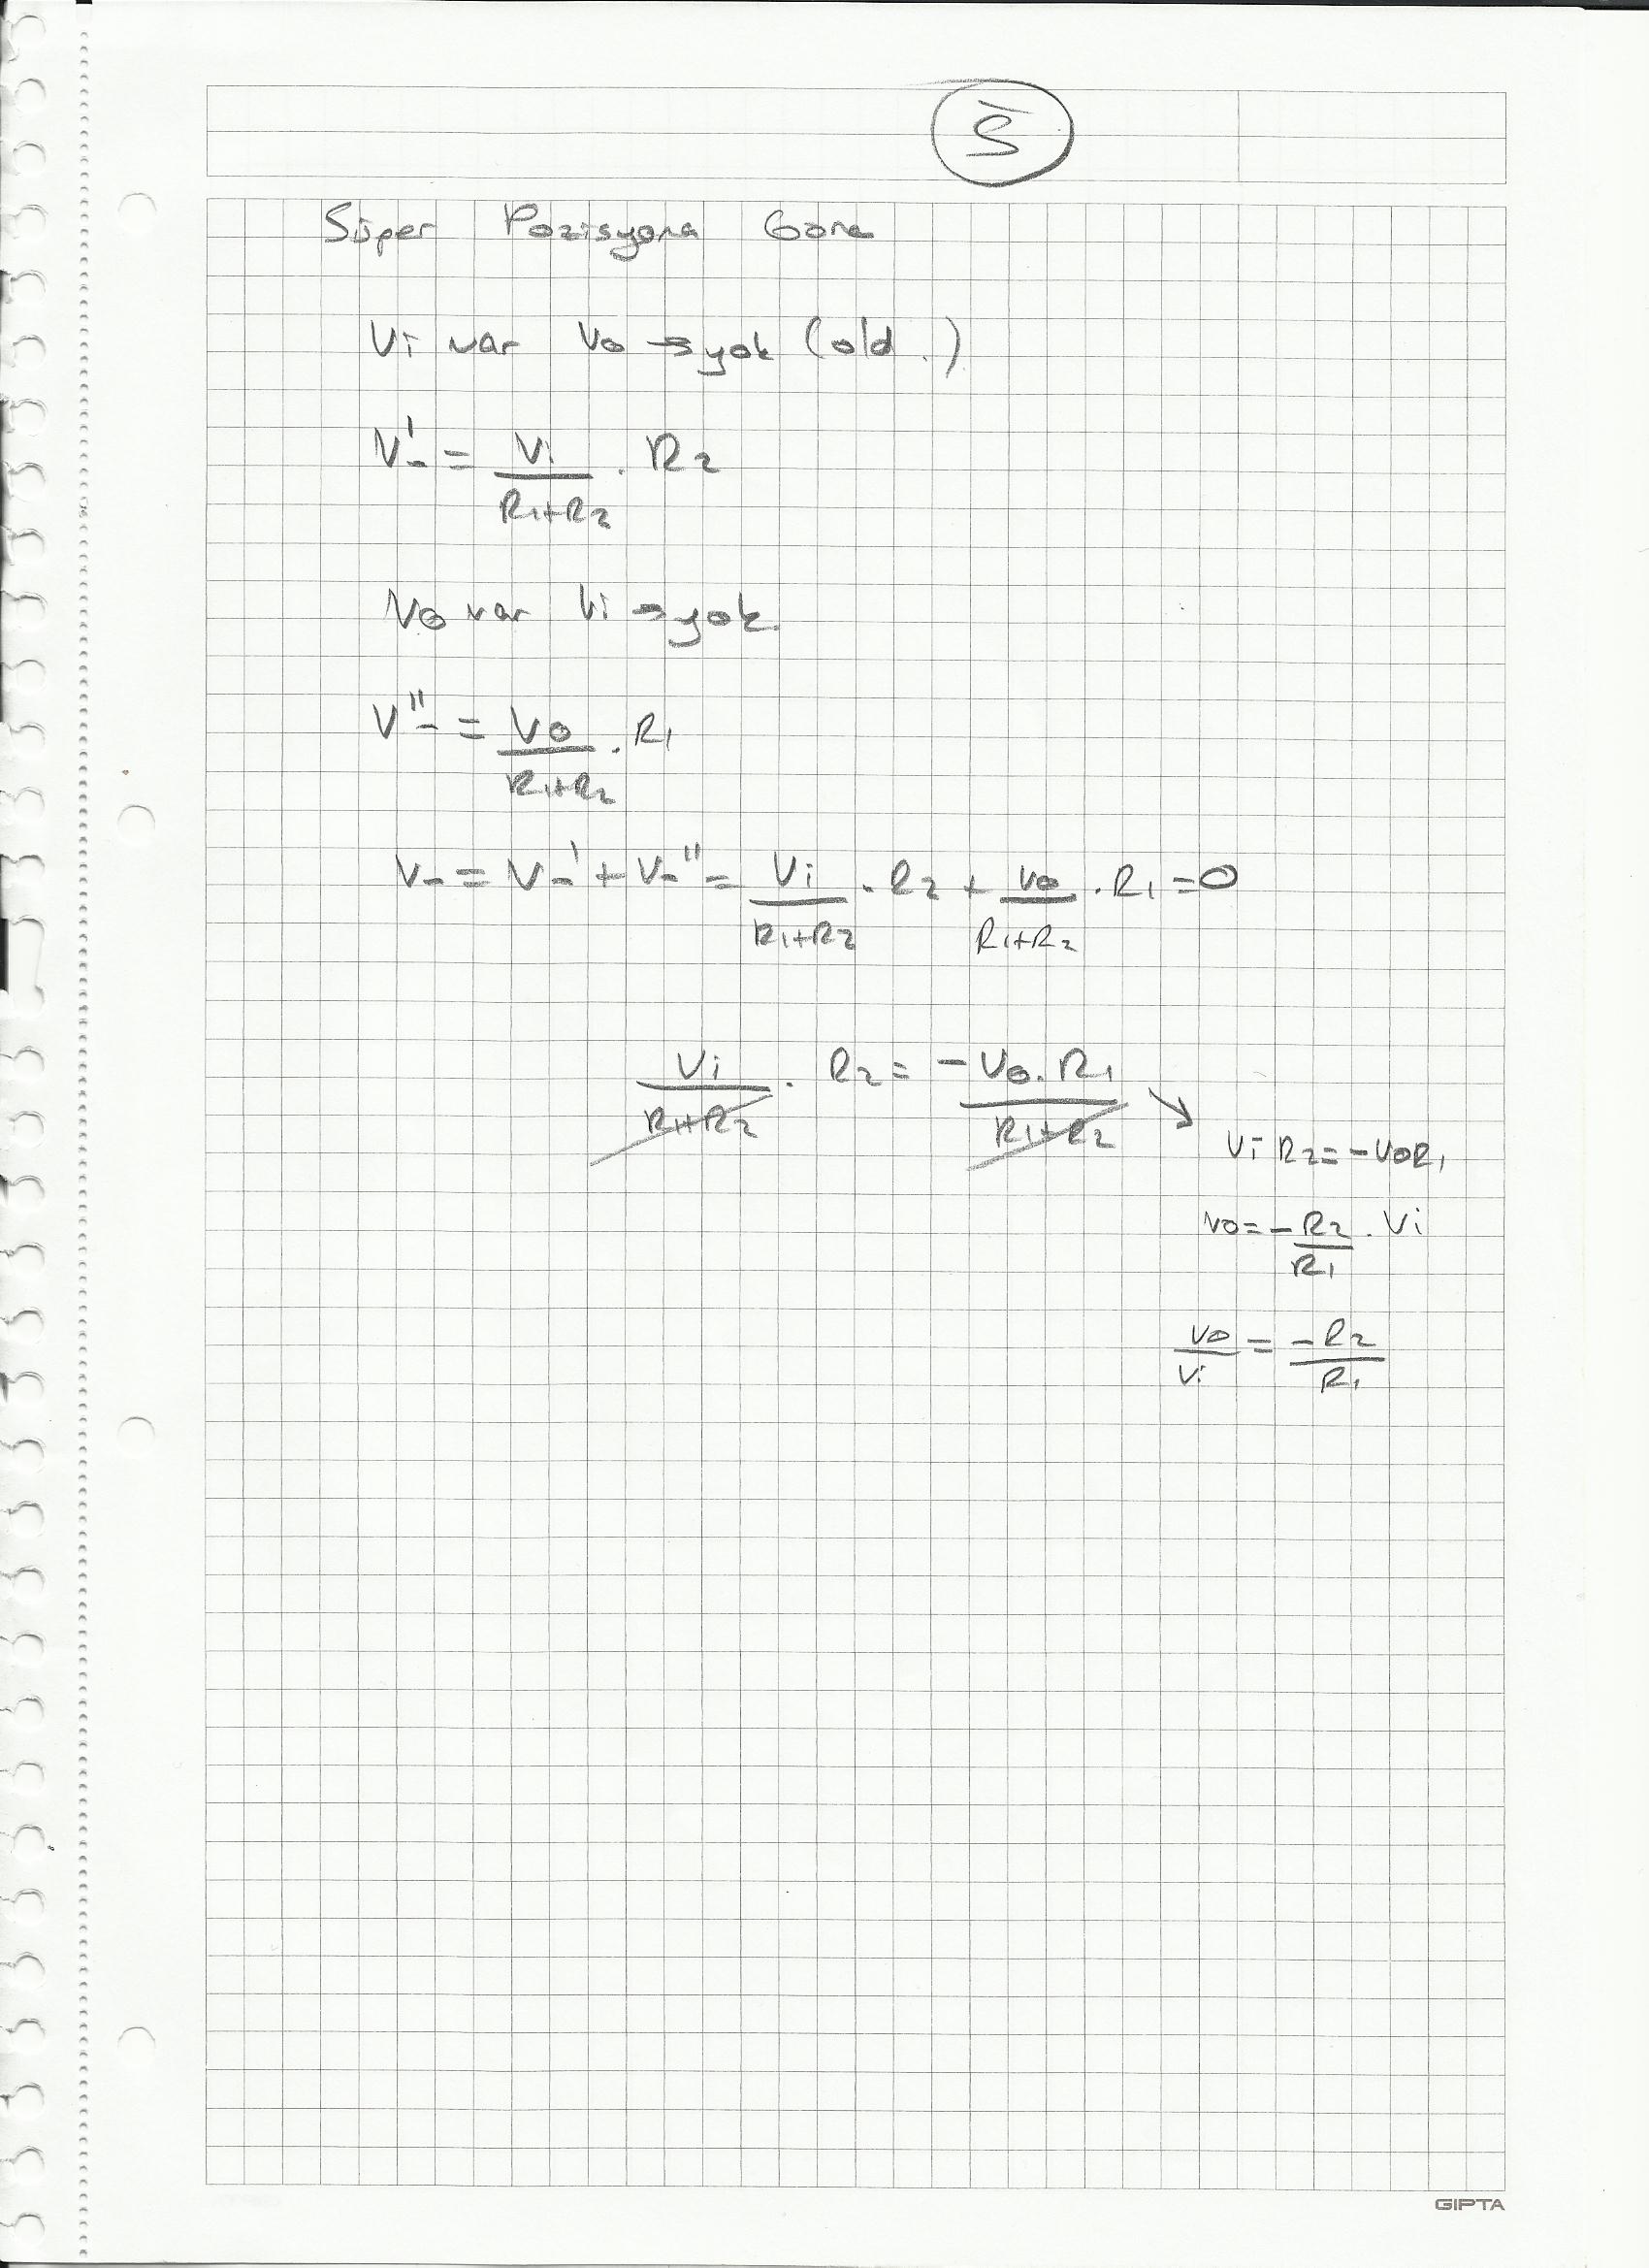 5
Süper Pozisyona Göre
Vi var Vo → yok (old.)
V'- = Vi/(R1+R2) . R2
Vo var Vi → yok.
V''- = Vo/(R1+R2) . R1
V- = V-' + V-'' = Vi/(R1+R2) . R2 + Vo/(R1+R2) . R1 = 0
Vi/(R1+R2) . R2 = -Vo.R1/(R1+R2) ↘
Vi R2 = -VoR1
Vo = -R2/R1 . Vi
Vo/Vi = -R2/R1
GIPTA